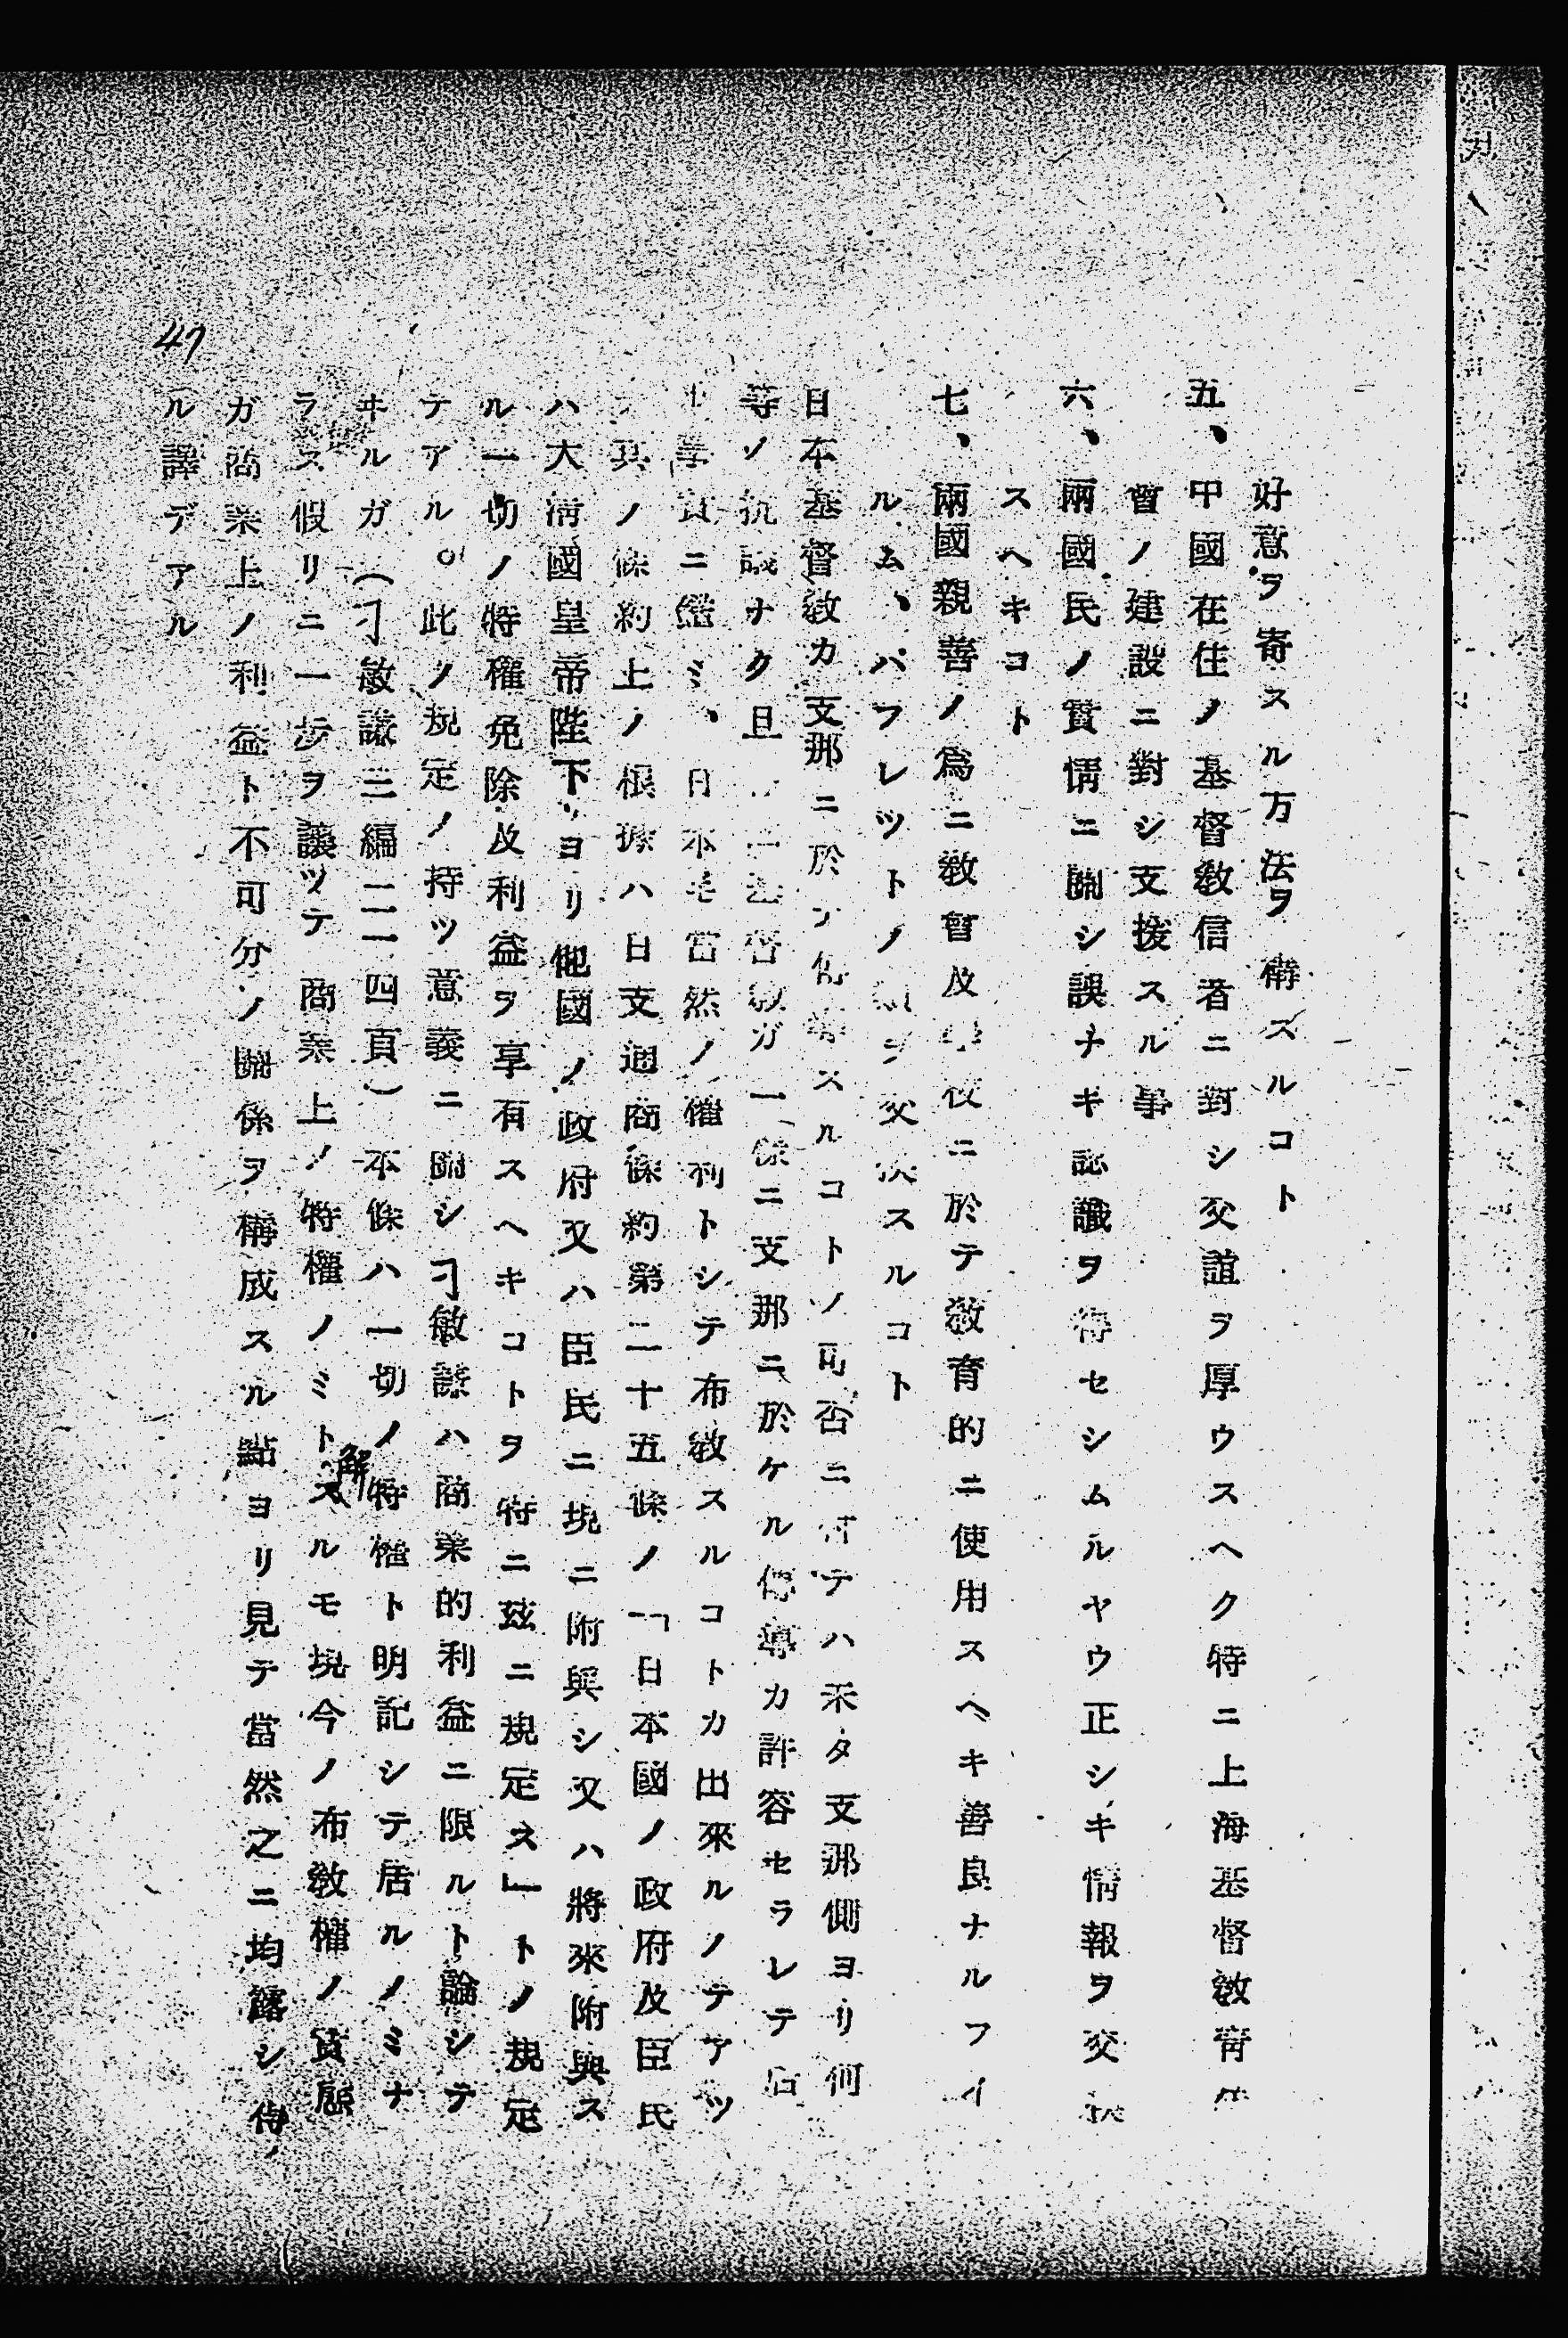 好意ヲ寄スル方法ヲ講ズルコト
五、中國在住ノ基督敎信者ニ對シ交誼ヲ厚ウスヘク特ニ上海基督敎靑年
會ノ建設ニ對シ支援スル事
六、兩國民ノ實情ニ關シ誤ナキ認識ヲ得セシムルヤウ正シキ情報ヲ交換
スヘキコト
七、兩國親善ノ爲ニ敎會及學校ニ於テ敎育的ニ使用スヘキ善良ナルフイ
ルム、パフレツトノ類ヲ交換スルコト
日本基督敎カ支那ニ於テ傳導スルコトノ可否ニ付テハ未タ支那側ヨリ何
等ノ抗議ナク且 基督敎ガ一樣ニ支那ニ於ケル傳導カ許容セラレテ居
ル事實ニ鑑ミ、日本モ當然ノ權利トシテ布敎スルコトカ出來ルノテアツ
テ其ノ條約上ノ根據ハ日支通商條約第二十五條ノ「日本國ノ政府及臣民
ハ大淸國皇帝陛下ヨリ他國ノ政府又ハ臣民ニ現ニ附與シ又ハ將來附與ス
ル一切ノ特權免除及利益ヲ享有スヘキコトヲ特ニ玆ニ規定ス」トノ規定
テアル。此ノ規定ノ持ツ意義ニ關シ刁敏謙ハ商業的利益ニ限ルト論シテ
ヰルガ(刁敏謙三編二一四頁)本條ハ一切ノ特權ト明記シテ居ルノミナ
ラス假リニ一歩ヲ讓ツテ商業上ノ特權ノミト解スルモ現今ノ布敎權ノ實態
ガ商業上ノ利益ト不可分ノ關係ヲ構成スル點ヨリ見テ當然之ニ均霑シ得
ル譯デアル
47